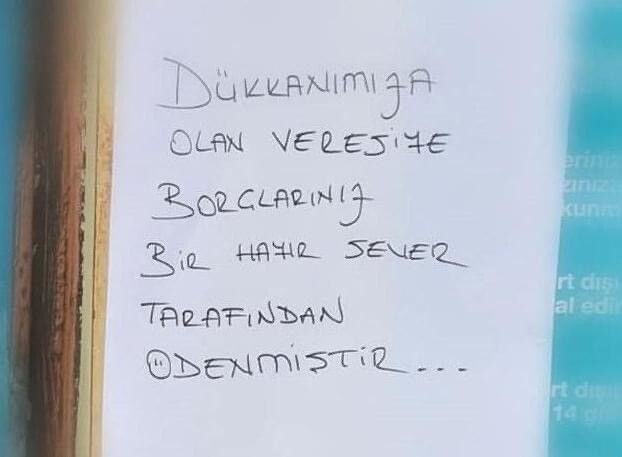 DÜKKANIMIZA
OLAN VERESİYE
BORÇLARINIZ
BİR HAYIR SEVER
TARAFINDAN
ÖDENMİŞTİR...
rt dışı
al edi
rt dışı